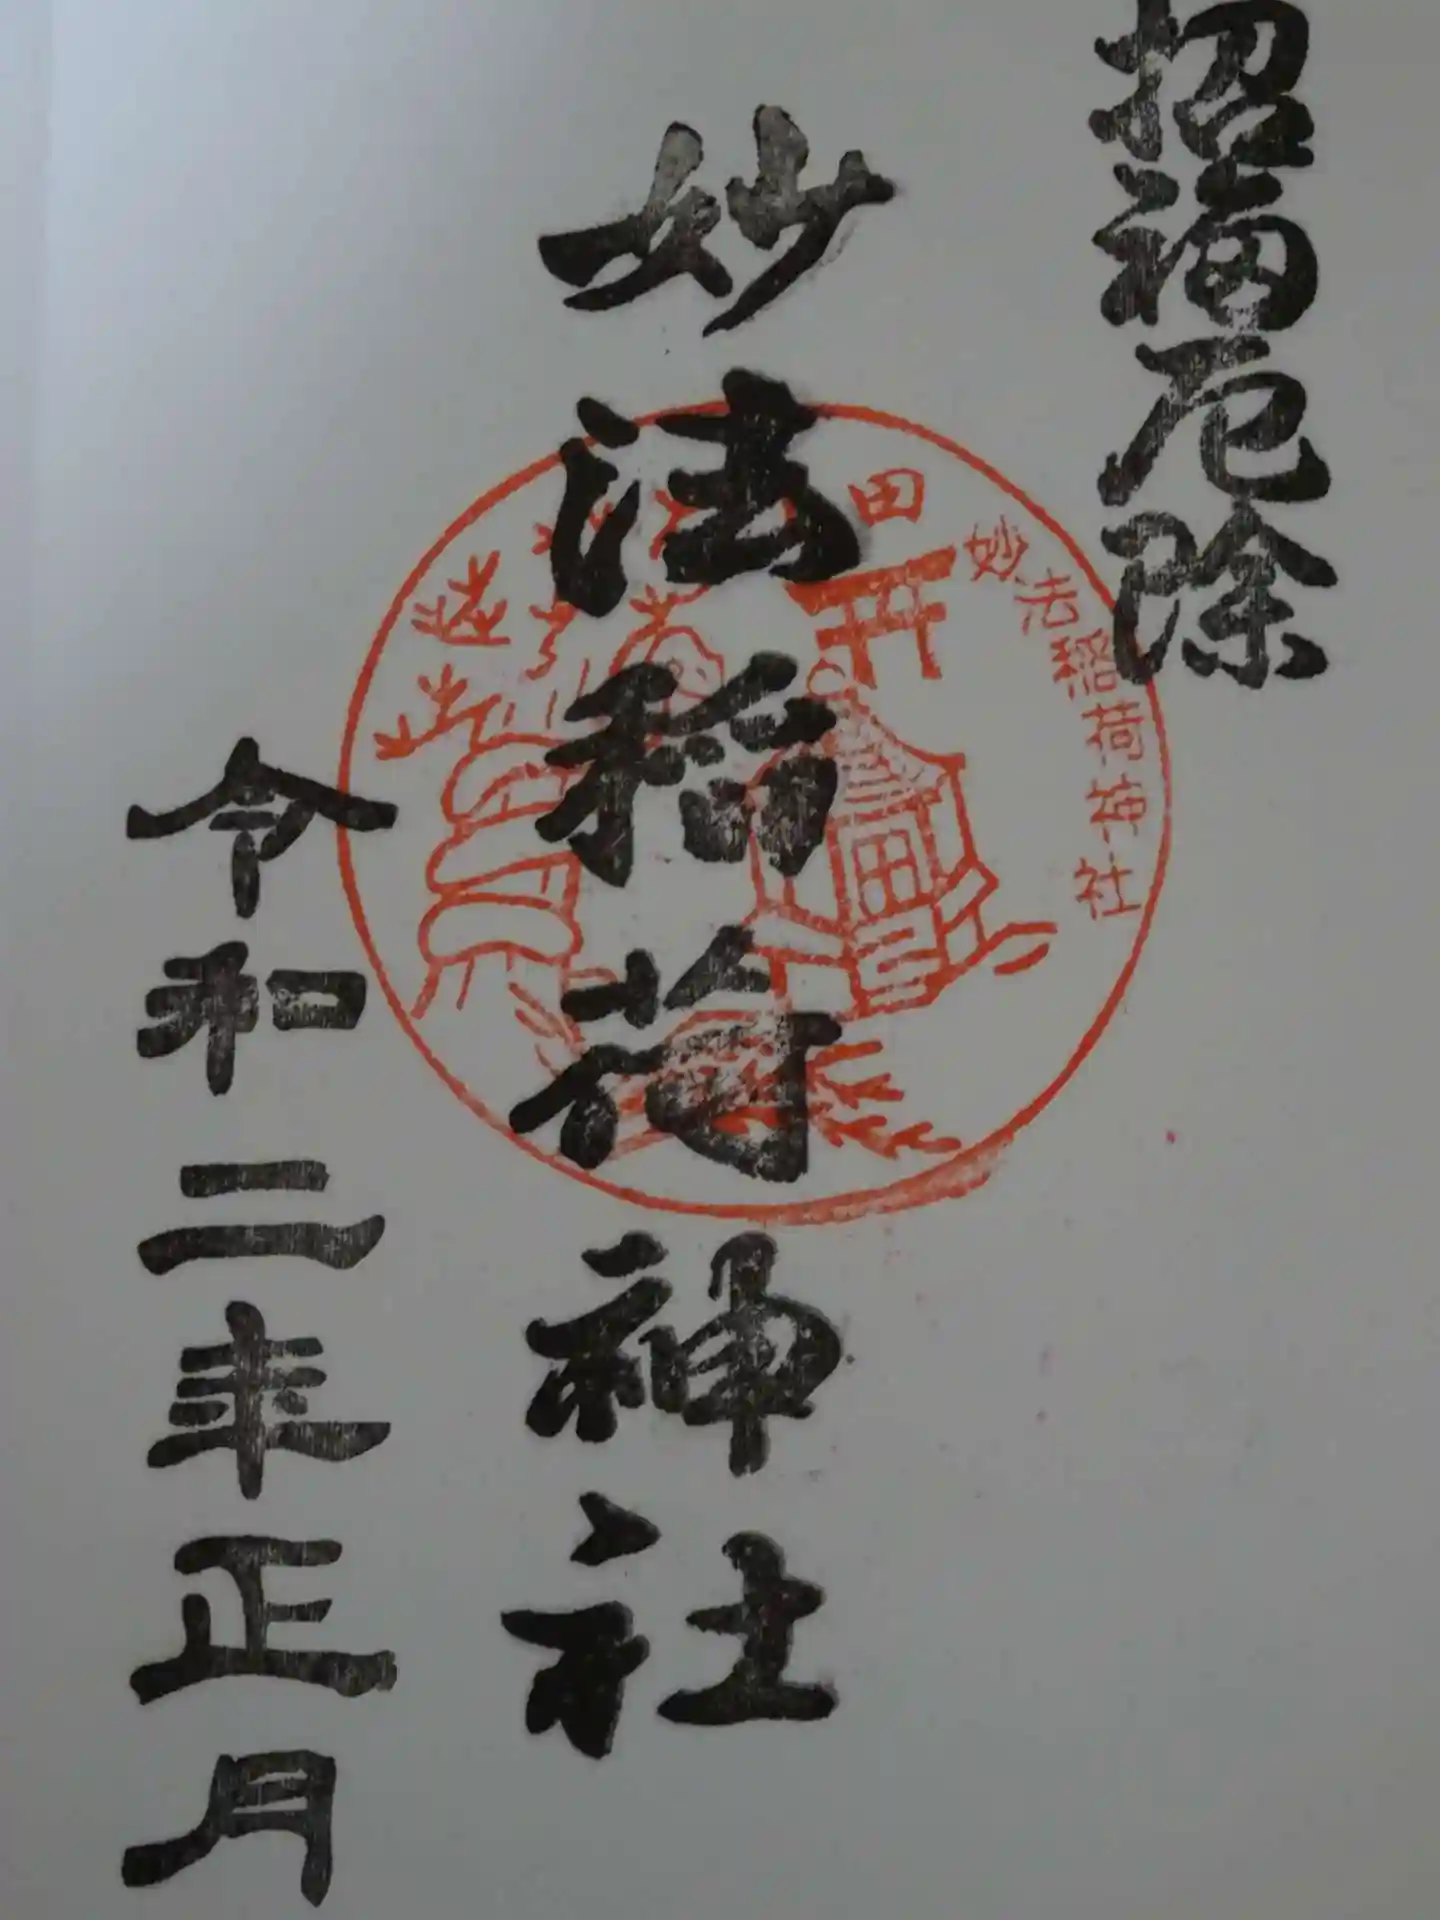 招福厄除
妙法稲荷神社
田
妙法稲荷神社
令和二年正月